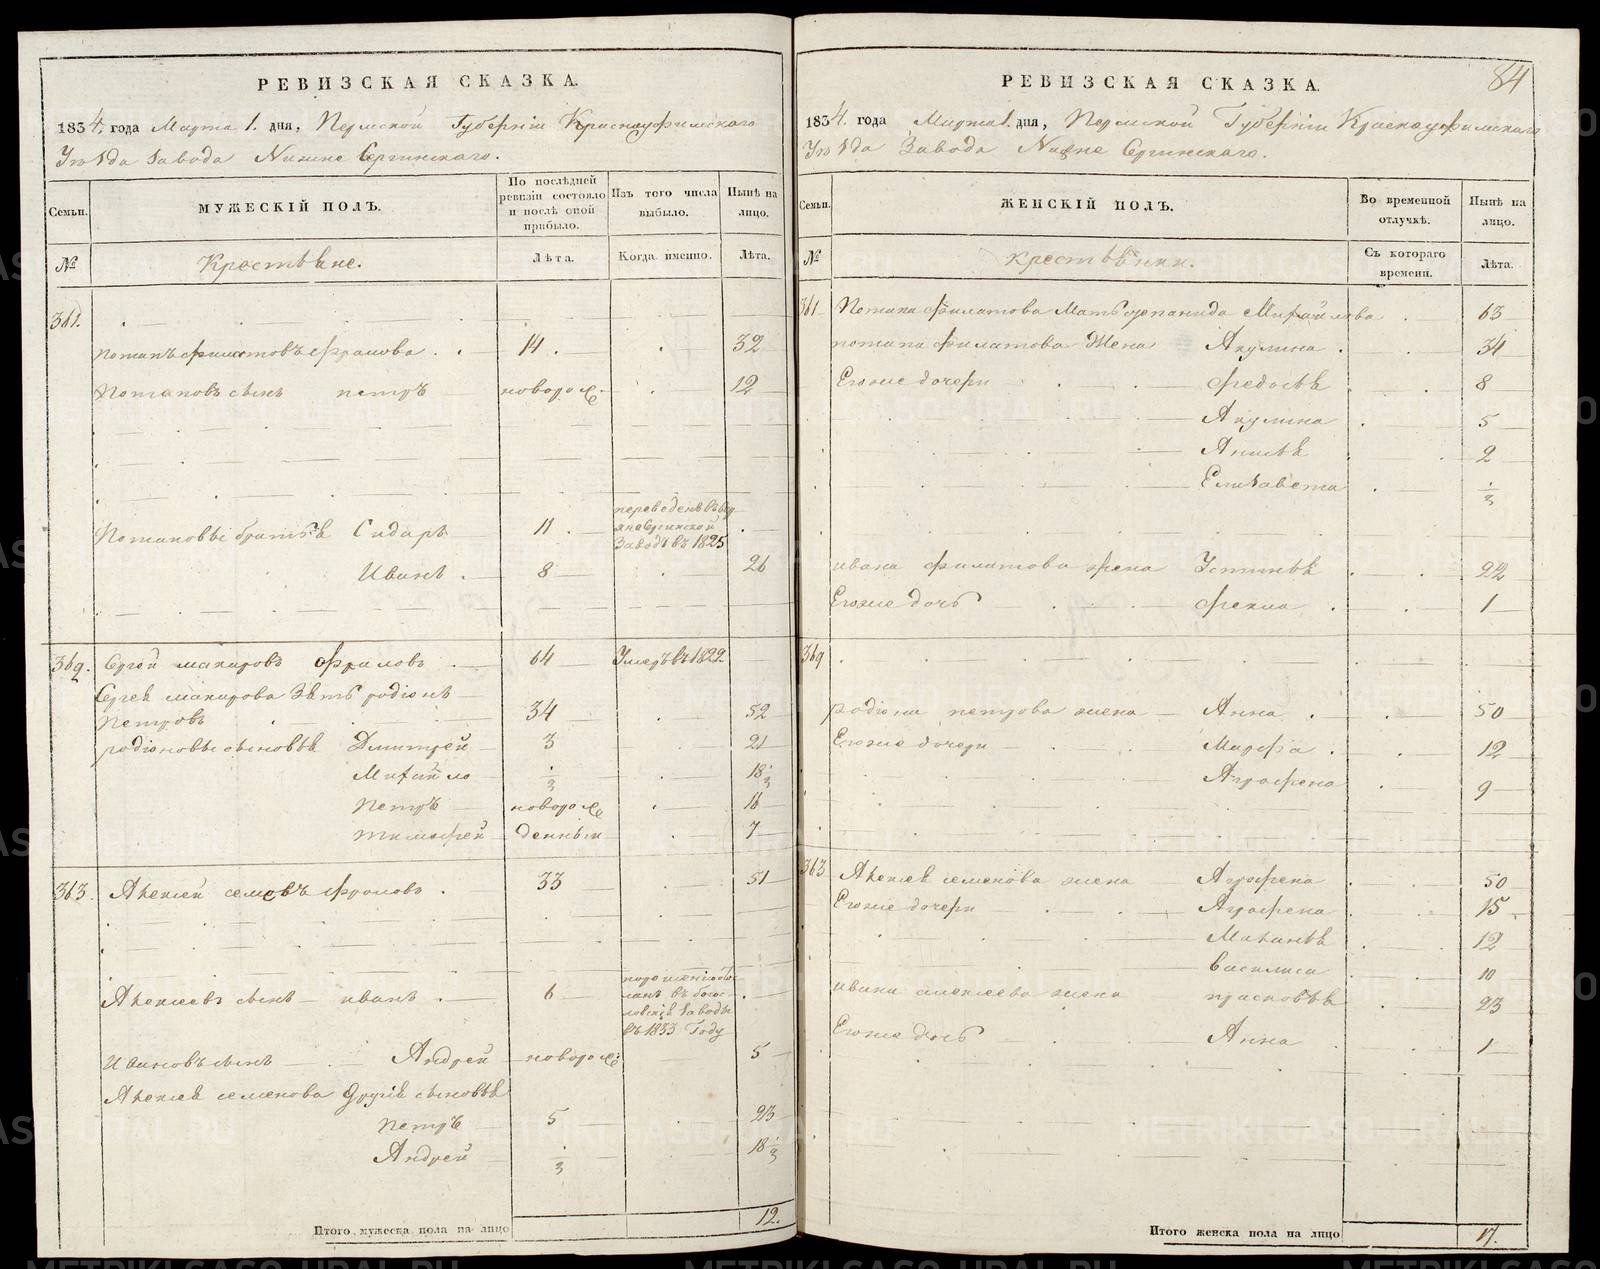 РЕВИЗСКАЯ СКАЗКА.
1834, года Марта 1. дня, Пермской Губерніи Красноуфимскаго
Уѣзда Завода Нижне Сергинскаго.
Семьи.
МУЖЕСКІЙ ПОЛЪ.
По послѣдней ревизіи состояло и послѣ оной прибыло.
Изъ того числа выбыло.
Нынѣ на лицо.
№
Крестьяне.
Лѣта.
Когда именно.
Лѣта.
361.
Потапъ Филатовъ Фролова 14. 32
Потаповъ сынъ петръ новорож. 12
Потаповы братья Сидаръ 11 переведенъ въ Верхнесергинской Заводъ въ 1825
Иванъ 8 26
362. Сергей макаровъ Фроловъ 64 Умеръ въ 1822
Сергея макарова Зять родіонъ
Петровъ 34 52
родіоновы сыновья Дмитрей 3 21
Михайло 1/3 18 1/3
Петръ новорож 16
тимофей денныи 7
363. Алексей семеовъ фроловъ 33 51
Алексеевъ сынъ иванъ 6 въ Богословскія Заводы въ 1833 Году
Ивановъ сынъ Андрей новорож 5
Алексея семенова Другія сыновья
петръ 5 23
Андрей 1/3 18 1/3
Итого мужеска пола на лицо 12.
84
РЕВИЗСКАЯ СКАЗКА.
1834. года Марта 1. дня, Пермской Губерніи Красноуфимскаго
Уѣзда Завода Нижне Сергинскаго.
Семьи.
ЖЕНСКІЙ ПОЛЪ.
Во временной отлучкѣ.
Нынѣ на лицо.
№
крестьянки.
Съ котораго времени.
Лѣта.
361 Потапа Филатова Мать степанида Михайлова 63
потапа филатова Жена Акулина 34
Егоже дочери федосья 8
Акулина 5
Анисья 2
Елизавета 1/3
ивана филатова жена Устинья 22
Егоже дочь фекла 1
362
родіона петрова жена Анна 50
Егоже дочери Марфа 12
Аграфена 9
363 Алексея семенова жена Аграфена 50
Егоже дочери Аграфена 15
Маланья 12
василиса 10
ивана алексеева жена прасковья 23
Егоже дочь Анна 1
Итого женска пола на лицо 17.
METRIKI.GASO-URAL.RU